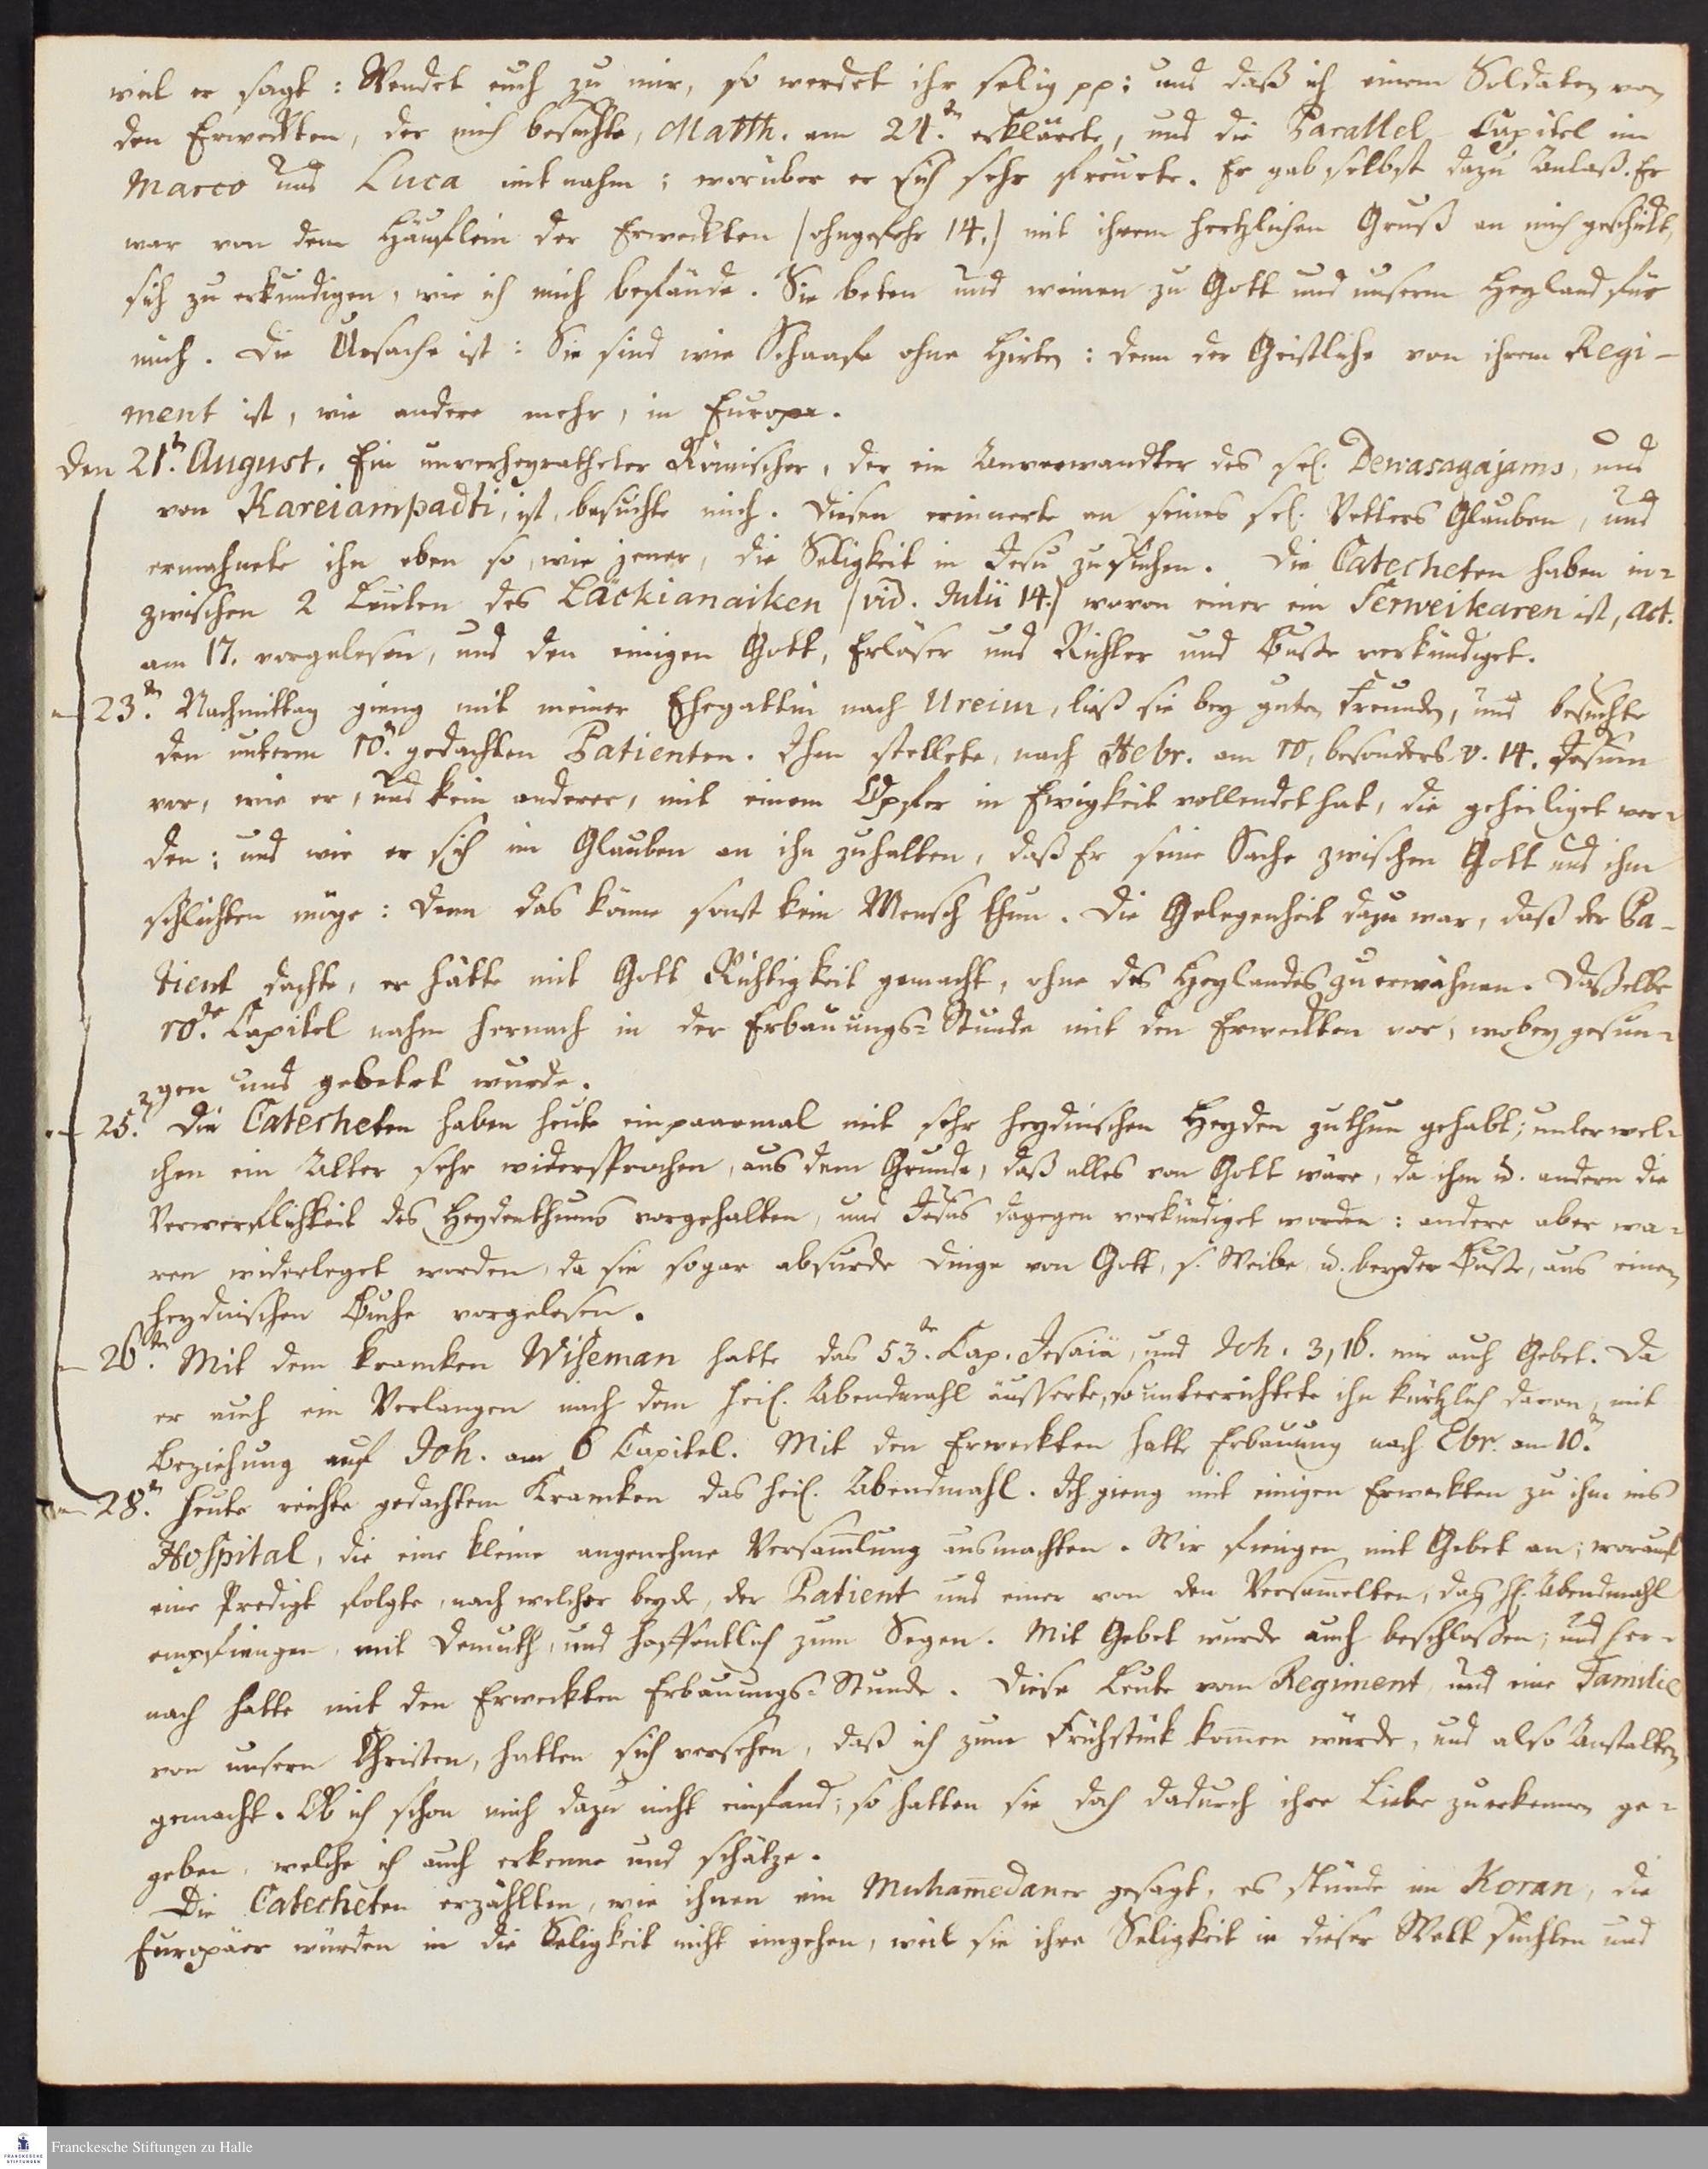 weil er sagt: Wendet euch zu mir, so werdet ihr selig pp; und daß ich einem Soldaten von
den Erweckten, der mich besuchte, Matth. am 24.ten erklärte, und die Parallel-Capitel im
Marco und Luca mit nahm; worüber er sich sehr freuete. Er gab selbst dazu Anlaß. Er
war von dem Häuflein der Erweckten (ohngefehr 14.) mit ihrem hertzlichen Gruß an mich geschickt,
sich zu erkundigen, wie ich mich befände. Sie beten und weinen zu Gott und unserm Heyland für
mich. Die Ursache ist: Sie sind wie Schaafe ohne Hirten: denn der Geistliche von ihrem Regi-
ment ist, wie andere mehr, in Europa.
Den 21.t August. Ein unverheyratheter Römischer, der ein Anverwandter des sel. Dewasagajams, und
von Kareiampadti, ist, besuchte mich. Diesen erinnerte an seines sel. Vetters Glauben, und
ermahnete ihn eben so, wie jener, die Seligkeit in Jesu zu suchen. Die Catecheten haben in-
zwischen 2 Leuten des Läckianaiken (vid. Julii 14.) wovon einer ein Serweikaren ist, Act.
am 17. vorgelesen, und den einigen Gott, Erlöser und Richter und Buße verkündiget.
- 23.t Nachmittag gieng mit meiner Ehegattin nach Ureiur, ließ sie bey guten Freunden, und besuchte
den unterm 10.t gedachten Patienten. Ihm stellete, nach Hebr. am 10, besonders v. 14. Jesum
vor, wie er, und kein anderer, mit einem Opfer in Ewigkeit vollendet hat, die geheiliget wer-
den; und wie er sich im Glauben an ihn zuhalten, daß Er seine Sache zwischen Gott und ihm
schlichten möge: denn das könne sonst kein Mensch thun. Die Gelegenheit dazu war, daß der Pa-
tient dachte, er hätte mit Gott Richtigkeit gemacht, ohne des Heylandes zu erwähnen. Daßelbe
10.te Capitel nahm hernach in der Erbauungs-Stunde mit den Erweckten vor, wobey gesun-
gen und gebetet wurde.
- 25.t Die Catecheten haben heute ein paarmal mit sehr heydnischen Heyden zuthun gehabt; unter wel-
chen ein Alter sehr widersprochen, aus dem Grunde, daß alles von Gott wäre, da ihm u. andern die
Verwerflichkeit des Heydenthums vorgehalten, und Jesus dagegen verkündiget worden: andere aber wa-
ren widerleget worden, da sie sogar absurde Dinge von Gott, s. Weibe u. beyder Buße, aus einem
heydnischen Buche vorgelesen.
- 26.ten Mit dem krancken Wiseman hatte das 53.te Cap. Jesaiä, und Joh. 3, 16. wie auch Gebet. Da
er auch ein Verlangen nach dem heil. Abendmahl äusserte, so unterrichtete ihn kürtzlich davon, mit
Beziehung auf Joh. am 6 Capitel. Mit den Erweckten hatte Erbauung nach Ebr. am 10.t
- 28.t Heute reichte gedachtem Krancken das heil. Abendmahl. Ich gieng mit einigen Erweckten zu ihm ins
Hospital, die eine kleine angenehme Versam̄lung ausmachten. Wir fiengen mit Gebet an; worauf
eine Predigt folgte, nach welcher beyde, der Patient und einer von den Versam̄elten, das hl. Abendmahl
empfiengen, mit Demuth, und hoffentlich zum Segen. Mit Gebet wurde auch beschloßen; und her-
nach hatte mit den Erweckten Erbauungs-Stunde. Diese Leute vom Regiment, und eine Familie
von unsern Christen, hatten sich versehen, daß ich zum Frühstück kom̄en würde, und also Anstalten
gemacht. Ob ich schon mich dazu nicht einfand; so hatten sie doch dadurch ihre Liebe zu erkennen ge-
geben, welche ich auch erkenne und schätze.
Die Catecheten erzählten, wie ihnen ein Muham̄edaner gesagt, es stünde im Koran, die
Europäer würden in die Seligkeit nicht eingehen, weil sie ihre Seligkeit in dieser Welt suchten und
Franckesche Stiftungen zu Halle
FRANCKESCHE
STIFTUNGEN